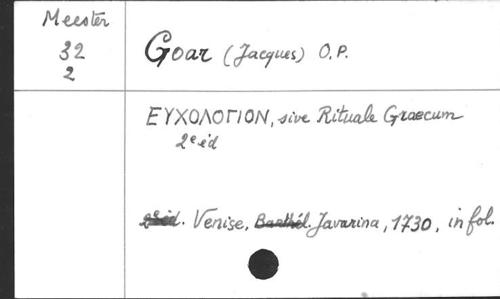 Meester
32
2
Goar (Jacques) O.P.
ΕΥΧΟΛΟΓΙΟΝ, sive Rituale Graecum
2e éd
2e éd. Venise, Barthél. Javarina, 1730, in fol.